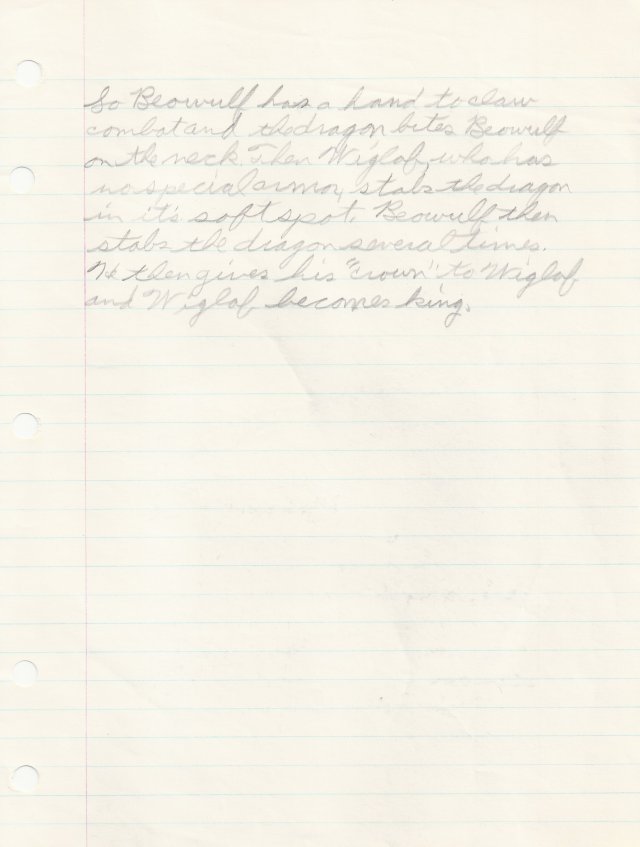 So Beowulf has a hand to claw
combat and the dragon bites Beowulf
on the neck. Then Wiglaf, who has
no special armor, stabs the dragon
in it's soft spot. Beowulf then
stabs the dragon several times.
He then gives his "crown" to Wiglaf
and Wiglaf becomes king.